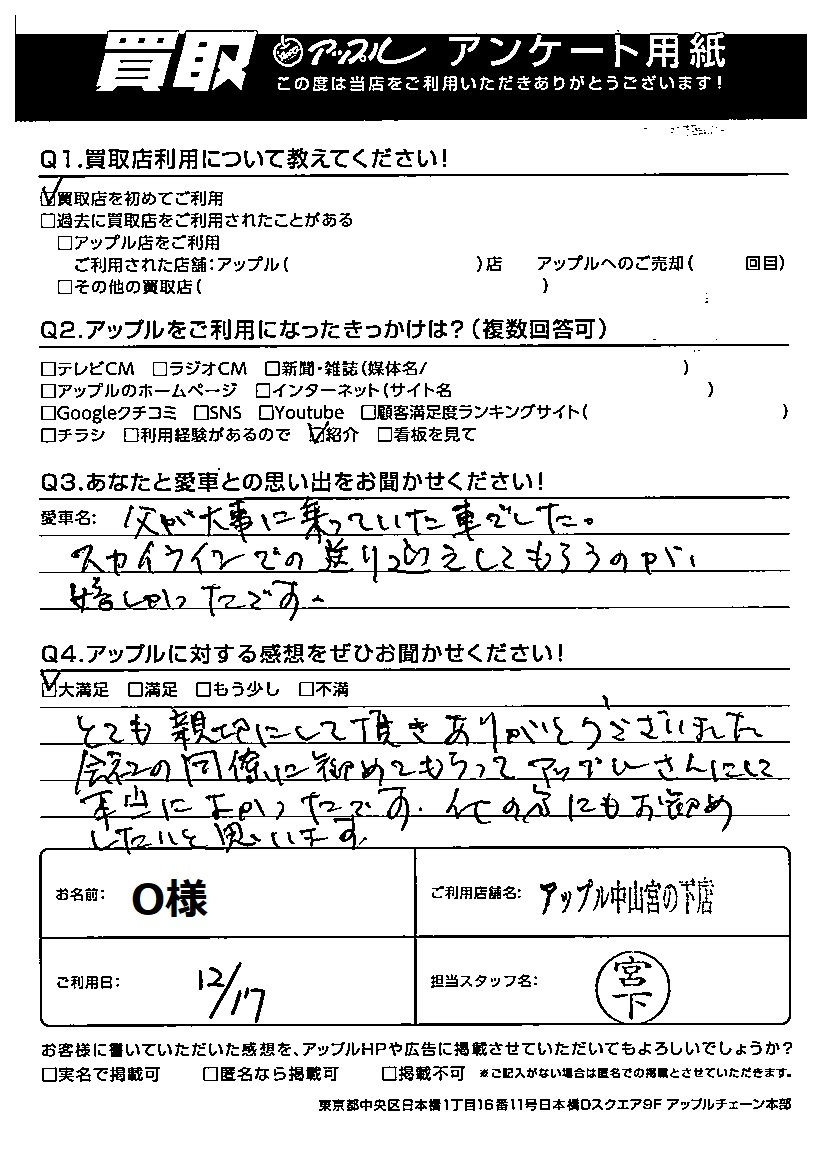 買取 アップル アンケート用紙
この度は当店をご利用いただきありがとうございます！
Q1.買取店利用について教えてください！
☑買取店を初めてご利用
□過去に買取店をご利用されたことがある
□アップル店をご利用
ご利用された店舗：アップル（ ）店 アップルへのご売却（ 回目）
□その他の買取店（ ）
Q2.アップルをご利用になったきっかけは？（複数回答可）
□テレビCM □ラジオCM □新聞・雑誌（媒体名/ ）
□アップルのホームページ □インターネット（サイト名 ）
□Googleクチコミ □SNS □Youtube □顧客満足度ランキングサイト（ ）
□チラシ □利用経験があるので ☑紹介 □看板を見て
Q3.あなたと愛車との思い出をお聞かせください！
愛車名： 父が大事に乗っていた車でした。
スカイラインでの送り迎えしてもらうのが、
嬉しかったです。
Q4.アップルに対する感想をぜひお聞かせください！
☑大満足 □満足 □もう少し □不満
とても親切にして頂きありがとうございました
会社の同僚に勧めてもらってアップルさんにして
本当によかったです。他の方にもお勧め
したいと思います。
お名前： O様 ご利用店舗名： アップル中山宮の下店
ご利用日： 12/17 担当スタッフ名： 宮下
お客様に書いていただいた感想を、アップルHPや広告に掲載させていただいてもよろしいでしょうか？
□実名で掲載可 □匿名なら掲載可 □掲載不可 ※ご記入がない場合は匿名での掲載とさせていただきます。
東京都中央区日本橋1丁目16番11号日本橋Dスクエア9F アップルチェーン本部